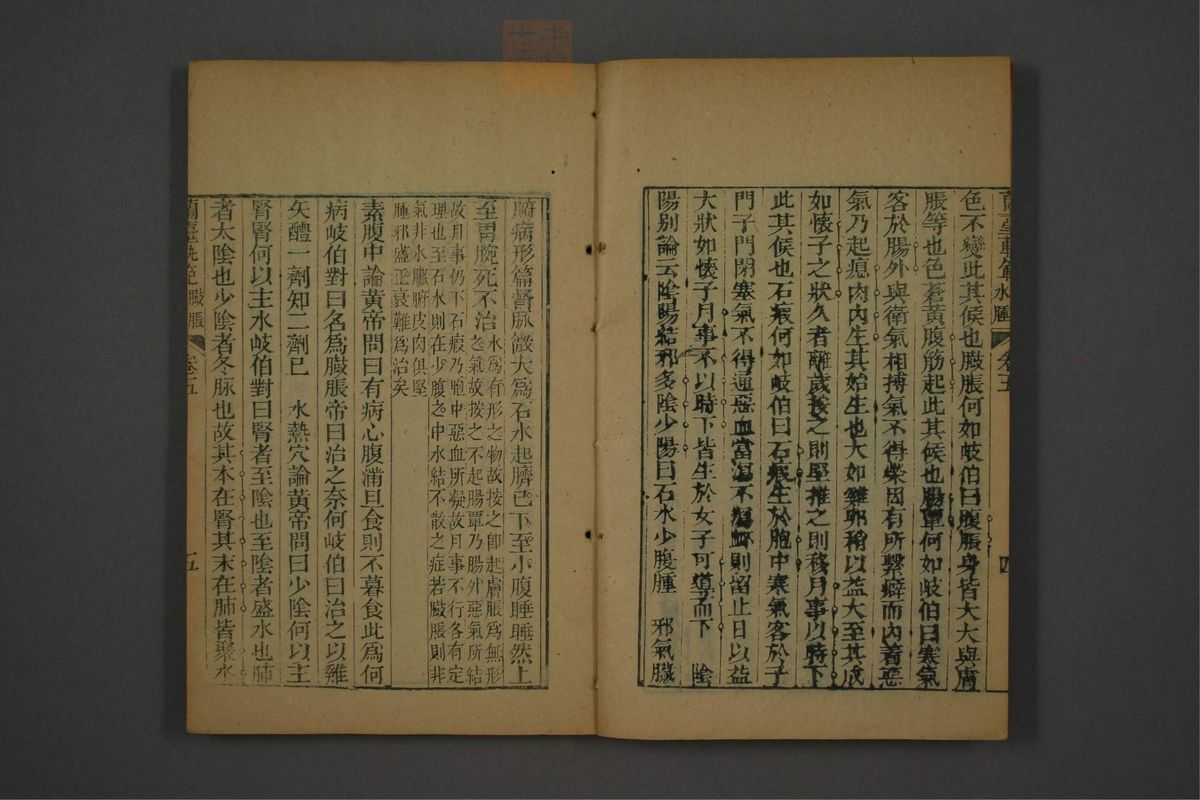 蘭臺軌範 水腫 卷五 四
色不變此其候也臟脹何如岐伯曰腹脹身皆大大與膚
脹等也色蒼黃腹筋起此其候也腸覃何如岐伯曰寒氣
客於腸外與衛氣相搏氣不得榮因有所繫癖而內着惡
氣乃起瘜肉內生其始生也大如雞卵稍以益大至其成
如懷子之狀久者離歲按之則堅推之則移月事以時下
此其候也石瘕何如岐伯曰石瘕生於胞中寒氣客於子
門子門閉塞氣不得通惡血當瀉不瀉衃則留止日以益
大狀如懷子月事不以時下皆生於女子可導而下 陰
陽別論云陰陽結邪多陰少陽曰石水少腹腫 邪氣臟
腑病形篇腎脉微大爲石水起臍已下至小腹腄腄然上
至胃脘死不治水爲有形之物故按之卽起膚脹爲無形
之氣故按之不起腸覃乃腸外惡氣所結
故月事仍下石瘕乃胞中惡血所凝故月事不行各有定
理也至石水則在少腹之中水結不散之症若臟脹則非
氣非水臟腑皮肉俱堅
腫邪盛正衰難爲治矣
素腹中論黃帝問曰有病心腹滿旦食則不暮食此爲何
病岐伯對曰名爲臟脹帝曰治之奈何岐伯曰治之以雞
矢醴一劑知二劑已 水熱穴論黃帝問曰少陰何以主
腎腎何以主水岐伯對曰腎者至陰也至陰者盛水也肺
者太陰也少陰者冬脉也故其本在腎其末在肺皆聚水
蘭臺軌範 臟脹 卷五 五